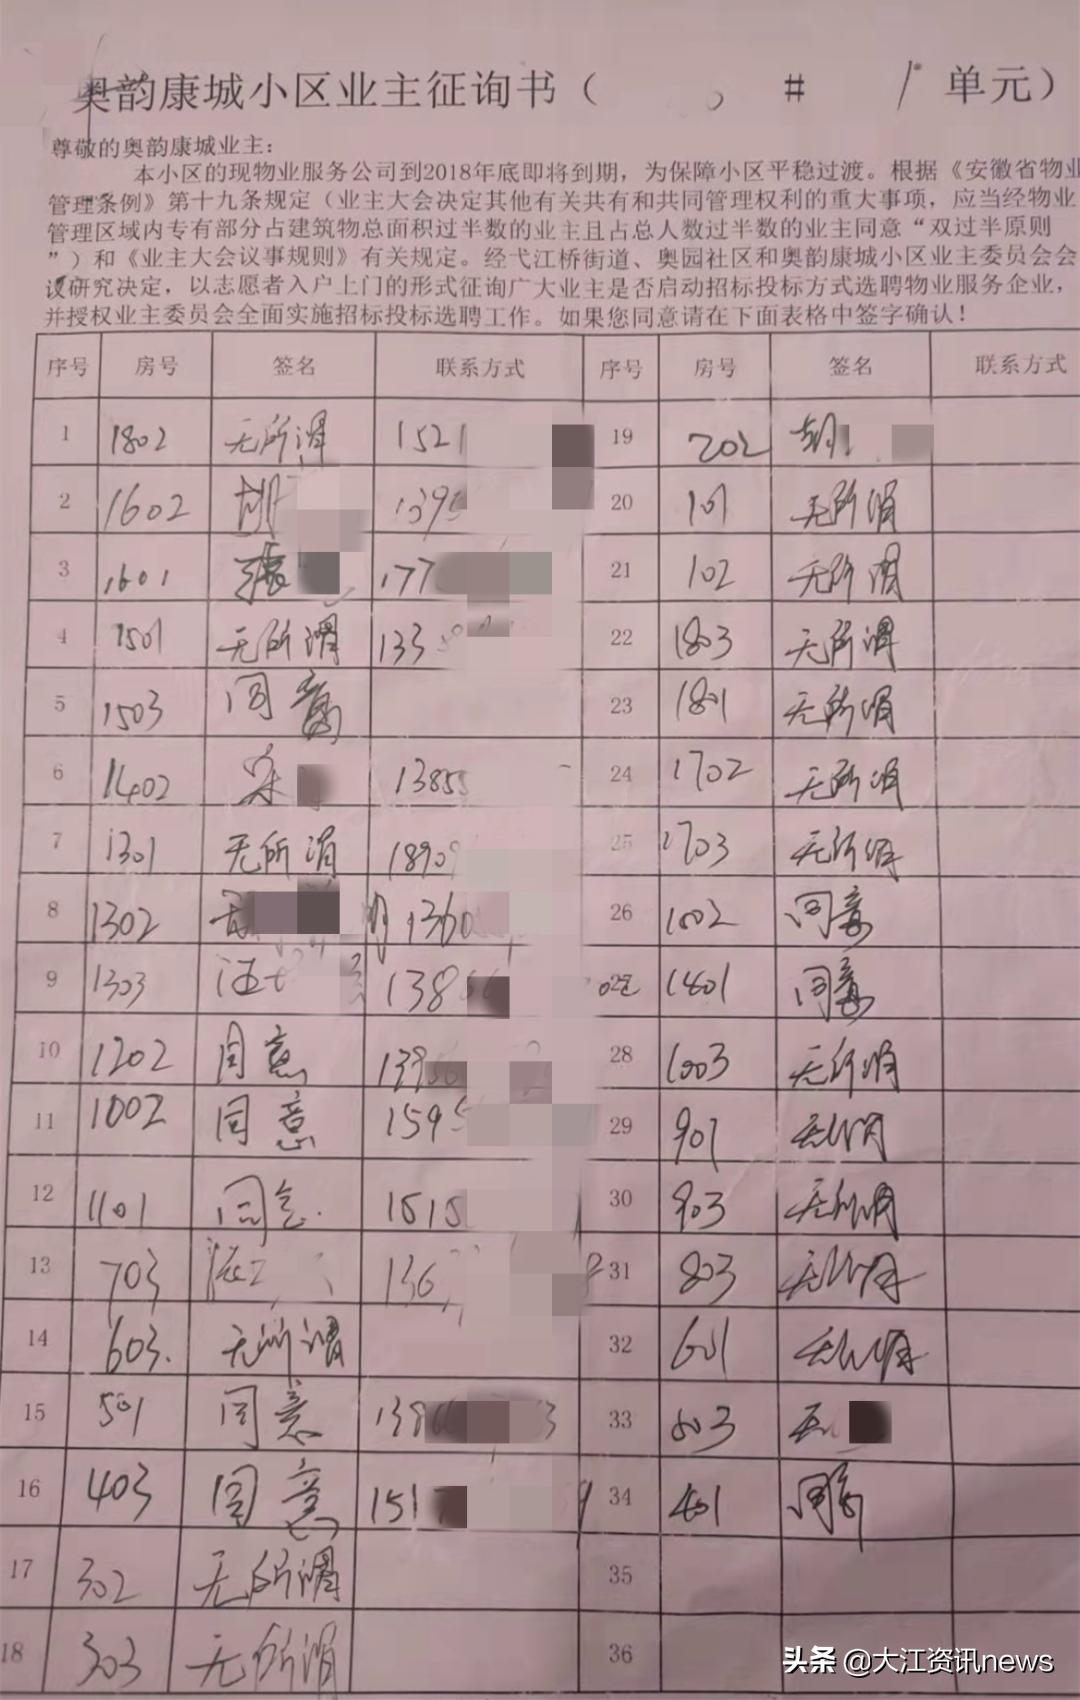 奥韵康城小区业主征询书（ # 1 单元）
尊敬的奥韵康城业主：
本小区的现物业服务公司到2018年底即将到期，为保障小区平稳过渡。根据《安徽省物业
管理条例》第十九条规定（业主大会决定其他有关共有和共同管理权利的重大事项，应当经物业
管理区域内专有部分占建筑物总面积过半数的业主且占总人数过半数的业主同意“双过半原则
”）和《业主大会议事规则》有关规定。经弋江桥街道、奥园社区和奥韵康城小区业主委员会会
议研究决定，以志愿者入户上门的形式征询广大业主是否启动招标投标方式选聘物业服务企业，
并授权业主委员会全面实施招标投标选聘工作。如果您同意请在下面表格中签字确认！
序号 房号 签名 联系方式 序号 房号 签名 联系方式
1 1802 无所谓 1521 19 202
2 1602 139 20 101 无所谓
3 1601 张 177 21 102 无所谓
4 1501 无所谓 133 22 1803 无所谓
5 1503 同意 23 1801 无所谓
6 1402 宋 1385 24 1702 无所谓
7 1301 无所谓 1890 25 1703 无所谓
8 1302 136 26 1002 同意
9 1303 汪 138 27 1401 同意
10 1202 同意 139 28 1003 无所谓
11 1002 同意 159 29 901 无所谓
12 1101 同意 1515 30 903 无所谓
13 703 136 31 803 无所谓
14 603 无所谓 32 601 无所谓
15 501 同意 138 33 无
16 403 同意 151 34 401 同意
17 302 无所谓 35
18 303 无所谓 36
头条 @大江资讯news